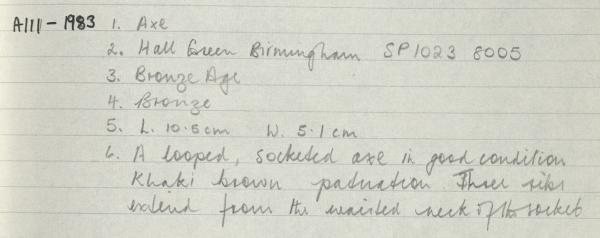 A111-1983 1. Axe
2. Hall Green Birmingham SP 1023 8005
3. Bronze Age
4. Bronze
5. L. 10.5cm W. 5.1cm
6. A looped, socketed axe in good condition
Khaki brown patination. Three ribs
extend from the waisted neck of the socket